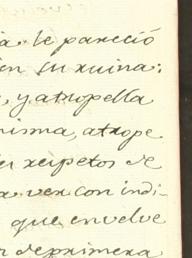 a. le pareció
en su ruina:
, y atropella
nisma, atrope
respetos de
a vex con indi
que envuelve
deprimera